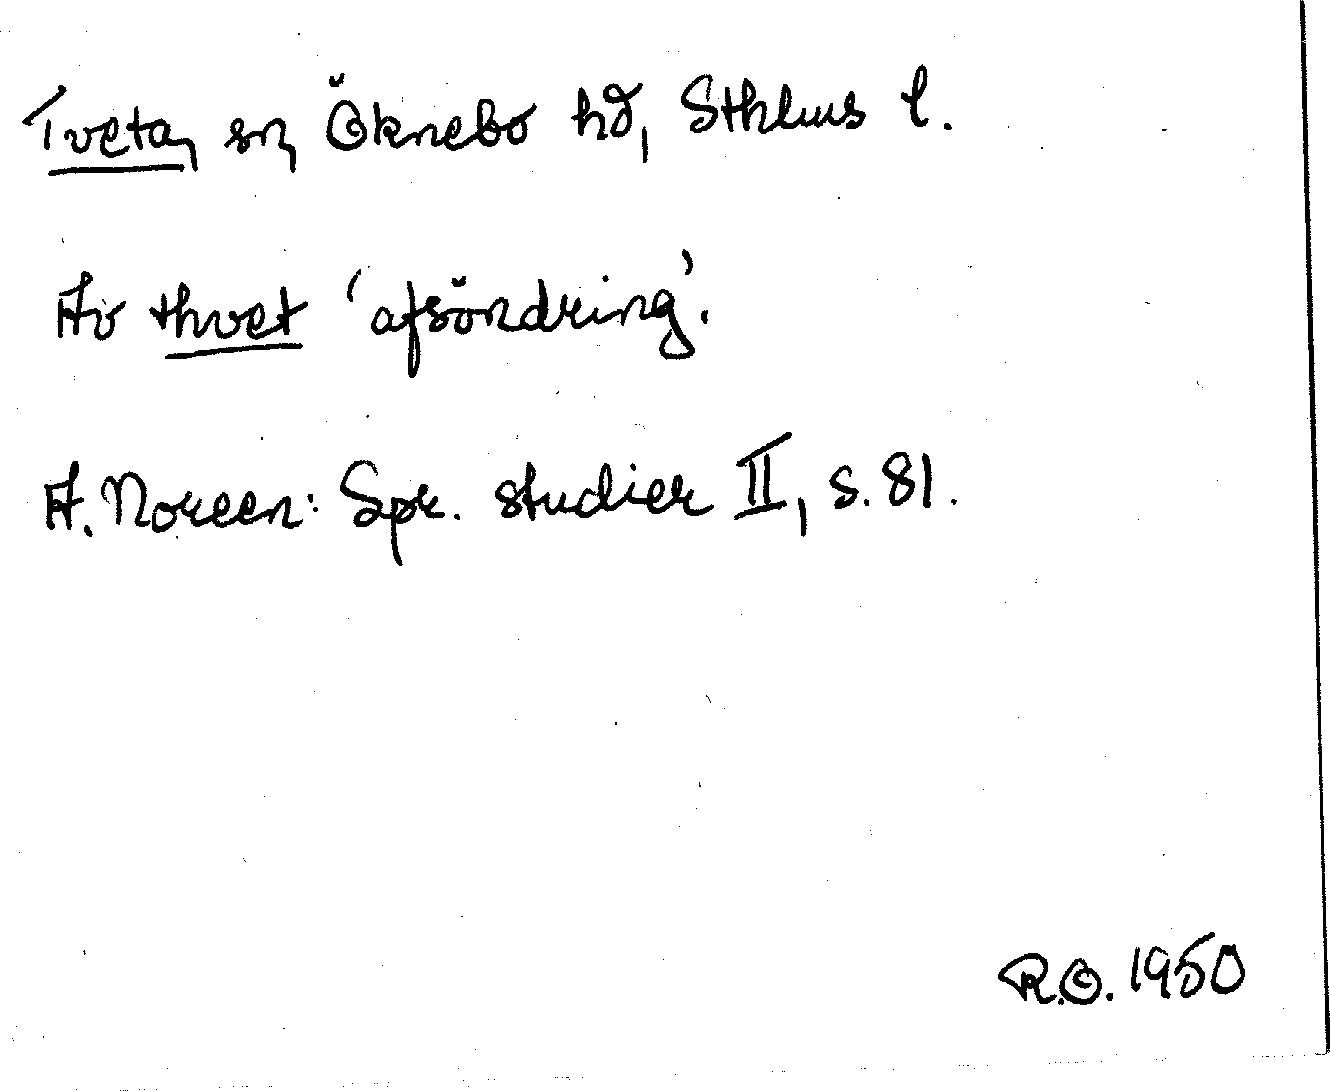 Tveta, sn, Öknebo hd, Sthlms l.
Av thvet 'afsöndring'.
A. Noreen: Spr. studier II, s. 81.
R.O. 1950